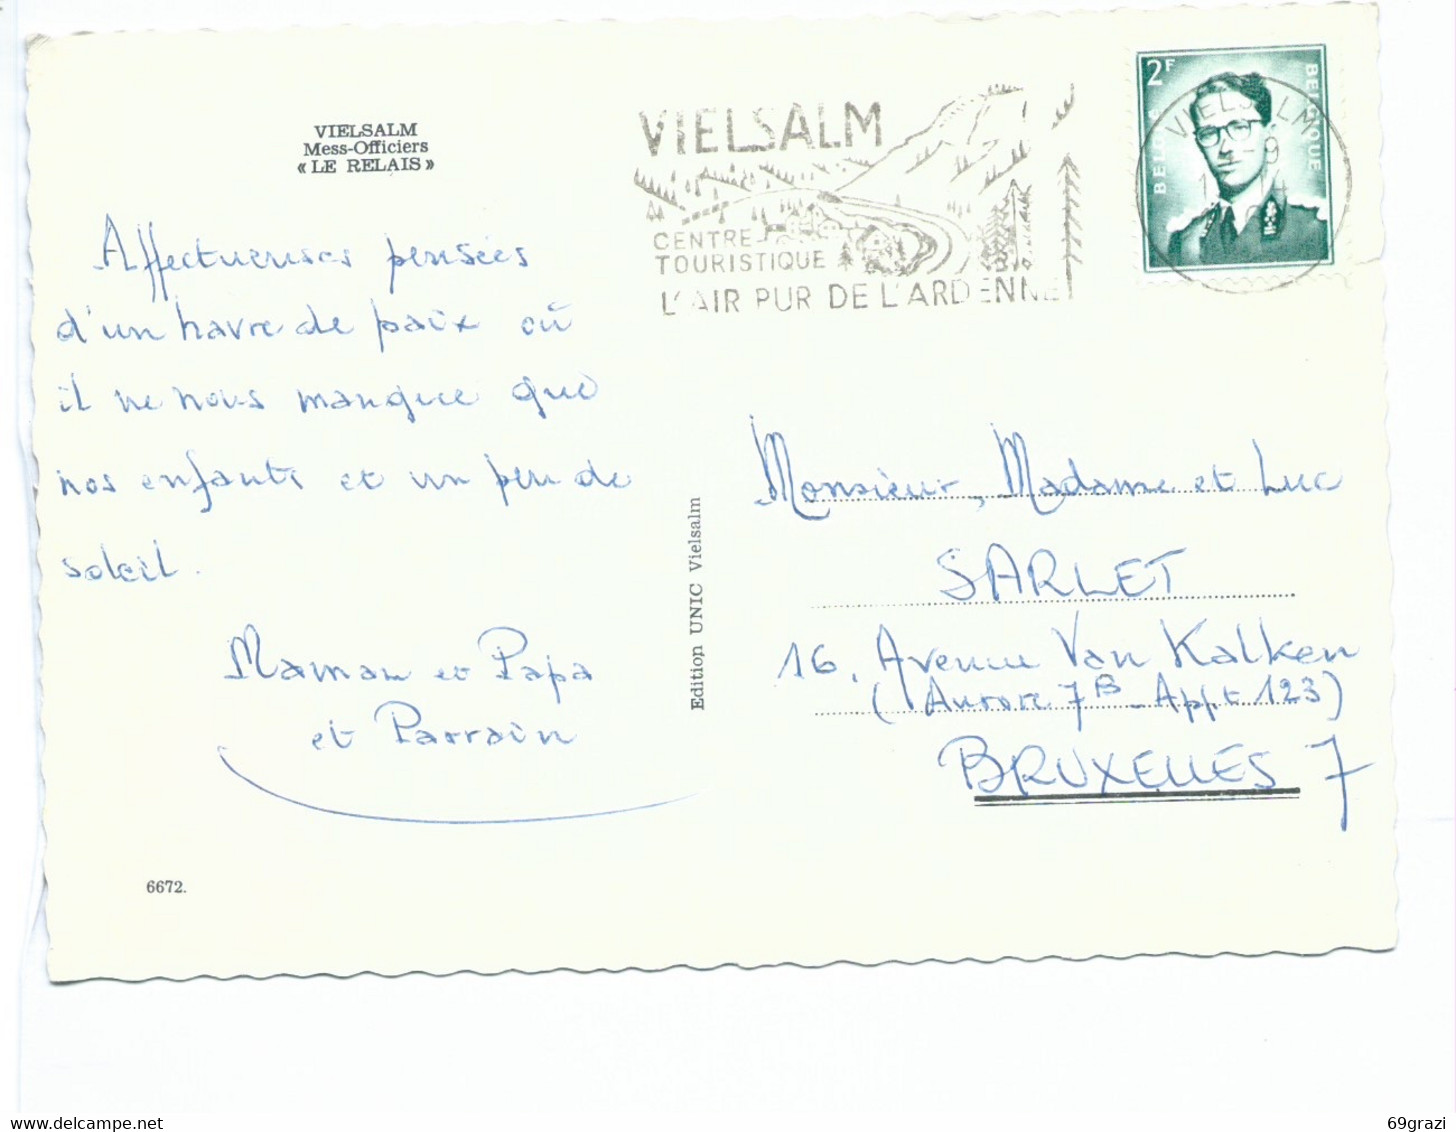 VIELSALM
Mess-Officiers
« LE RELAIS »
Affectueuses pensées
d'un havre de paix où
il ne nous manque que
nos enfants et un peu de
soleil.
Maman et Papa
et Parrain
6672.
Edition UNIC Vielsalm
VIELSALM
CENTRE
TOURISTIQUE
L'AIR PUR DE L'ARDENNE
2F
BELGIE
BELGIQUE
VIELSALM
Monsieur, Madame et Luc
SARLET
16, Avenue Van Kalken
(Aurore 7B - Appt 123)
BRUXELLES 7
69grazi